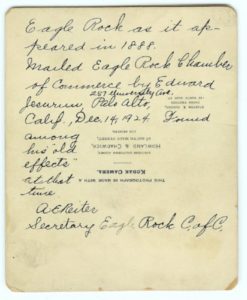 Eagle Rock as it ap-
peared in 1888.
Mailed Eagle Rock Chamber
of Commerce by Edward
257 University Ave.
Jesurum, Palo Alto,
Calif., Dec. 14, 1924 Found
among
his "old
effects"
at that
time
A E Reiter
Secretary Eagle Rock C. of C.
HOWLAND & CHADWICK
LOS ANGELES
KODAK CAMERA.
THIS PHOTOGRAPH IS MADE WITH A